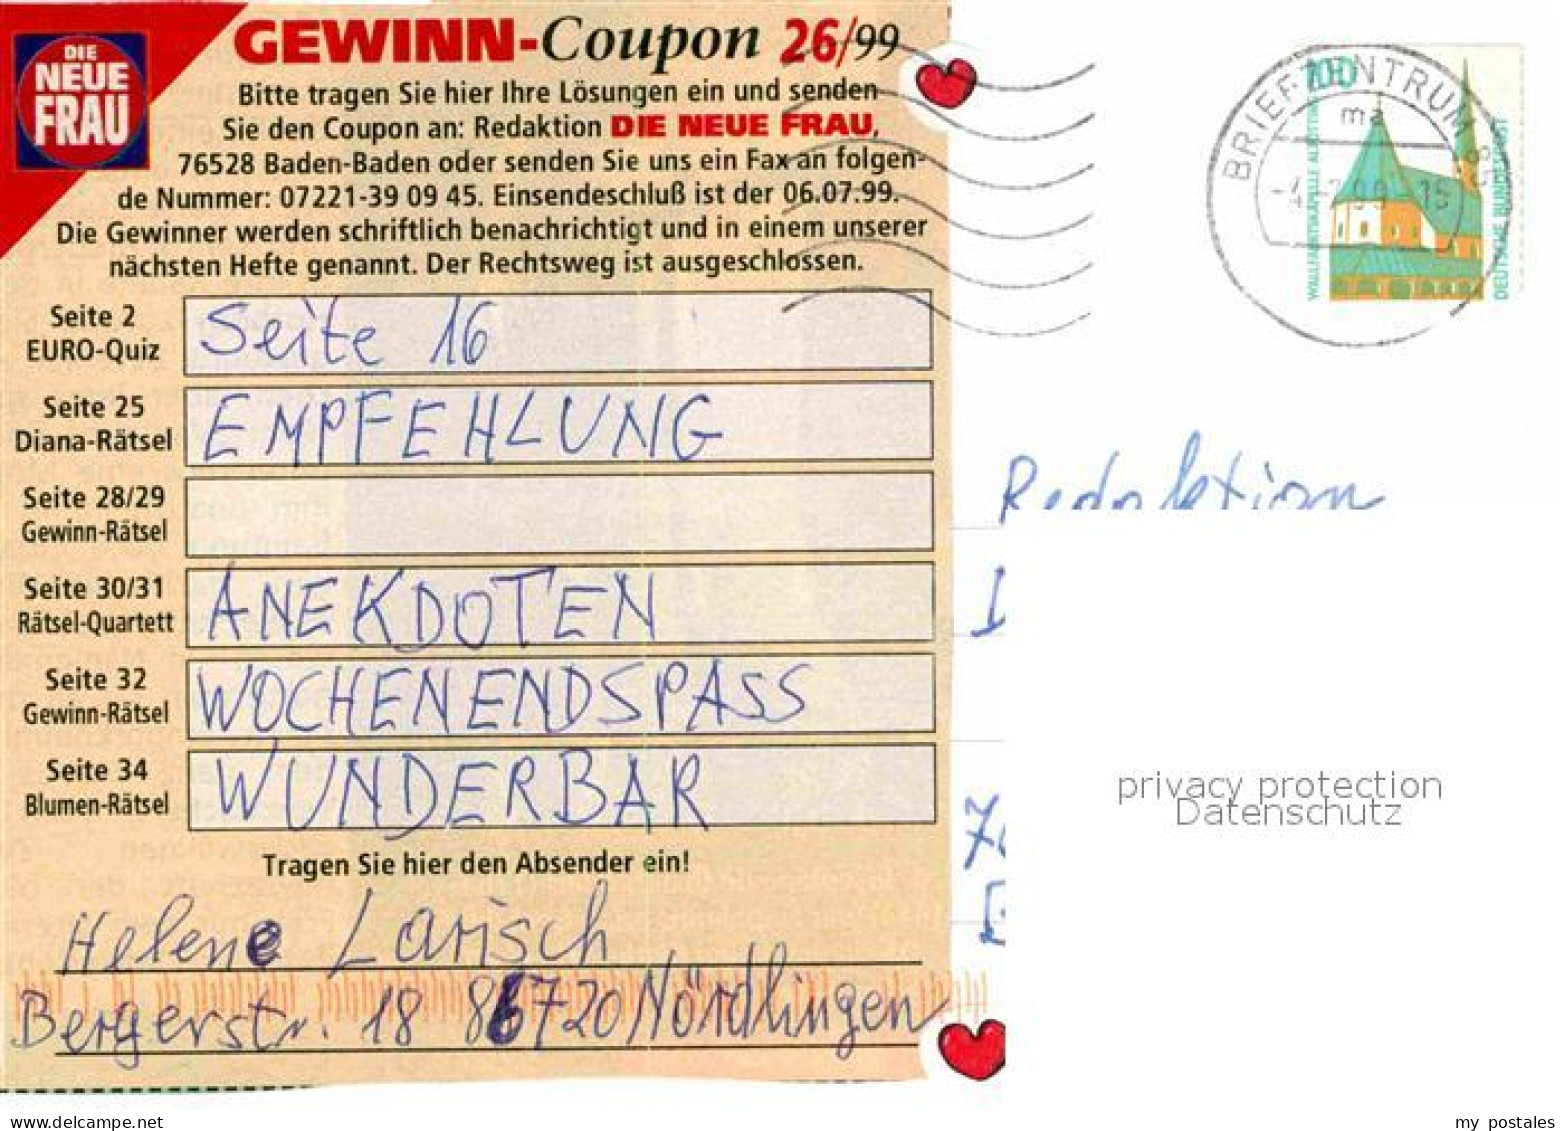 DIE
NEUE
FRAU
GEWINN-Coupon 26/99
Bitte tragen Sie hier Ihre Lösungen ein und senden
Sie den Coupon an: Redaktion DIE NEUE FRAU,
76528 Baden-Baden oder senden Sie uns ein Fax an folgen-
de Nummer: 07221-39 09 45. Einsendeschluß ist der 06.07.99.
Die Gewinner werden schriftlich benachrichtigt und in einem unserer
nächsten Hefte genannt. Der Rechtsweg ist ausgeschlossen.
Seite 2
EURO-Quiz
Seite 16
Seite 25
Diana-Rätsel
EMPFEHLUNG
Seite 28/29
Gewinn-Rätsel
Seite 30/31
Rätsel-Quartett
ANEKDOTEN
Seite 32
Gewinn-Rätsel
WOCHENENDSPASS
Seite 34
Blumen-Rätsel
WUNDERBAR
Tragen Sie hier den Absender ein!
Helene Larisch
Bergerstr. 18 86720 Nördlingen
BRIEFZENTRUM
ma
100
DEUTSCHE BUNDESPOST
Redaktion
privacy protection
Datenschutz
www.delcampe.net
my_postales